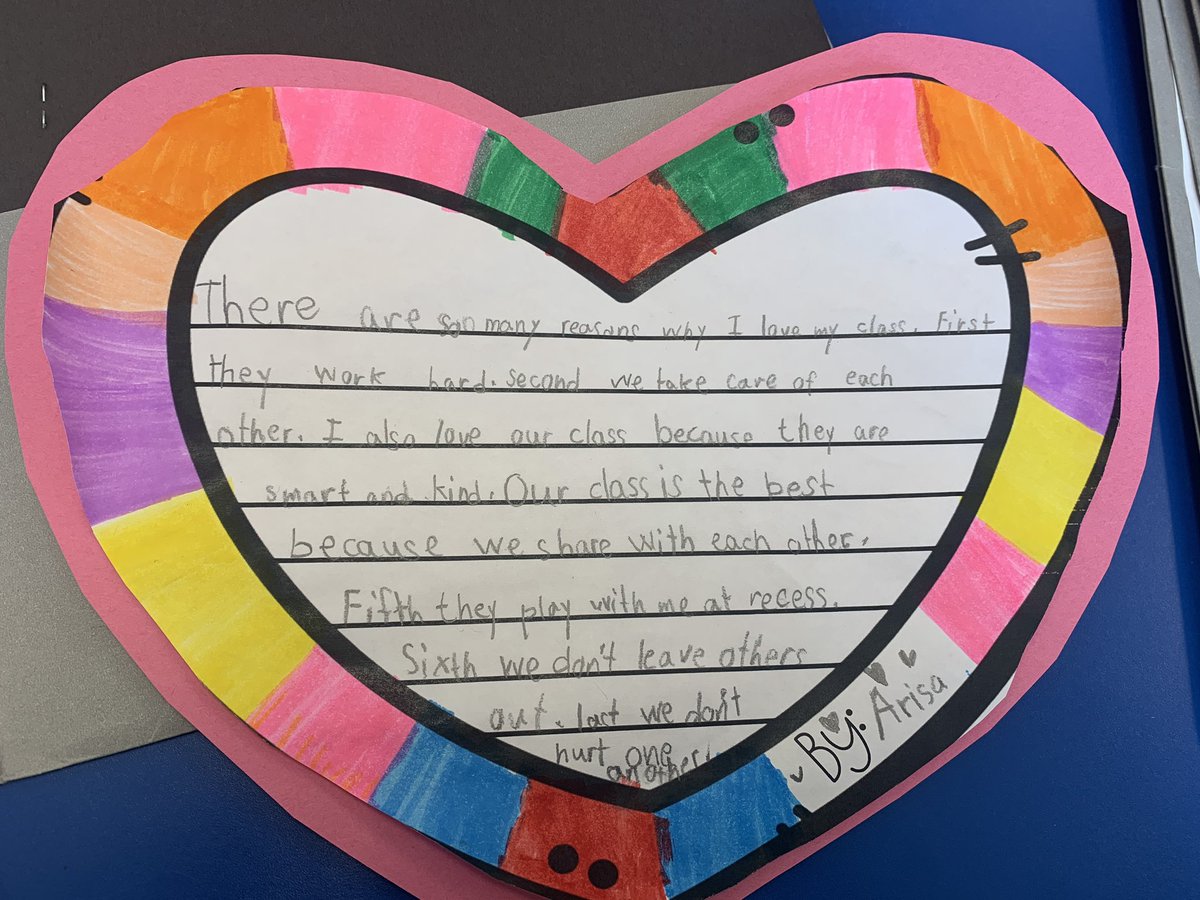 There are soo many reasons why I love my class. First
they work hard. second we take care of each
other. I also love our class because they are
smart and kind. Our class is the best
because we share with each other.
Fifth they play with me at recess.
Sixth we don't leave others
out. last we don't
hurt one
another
By: Arisa